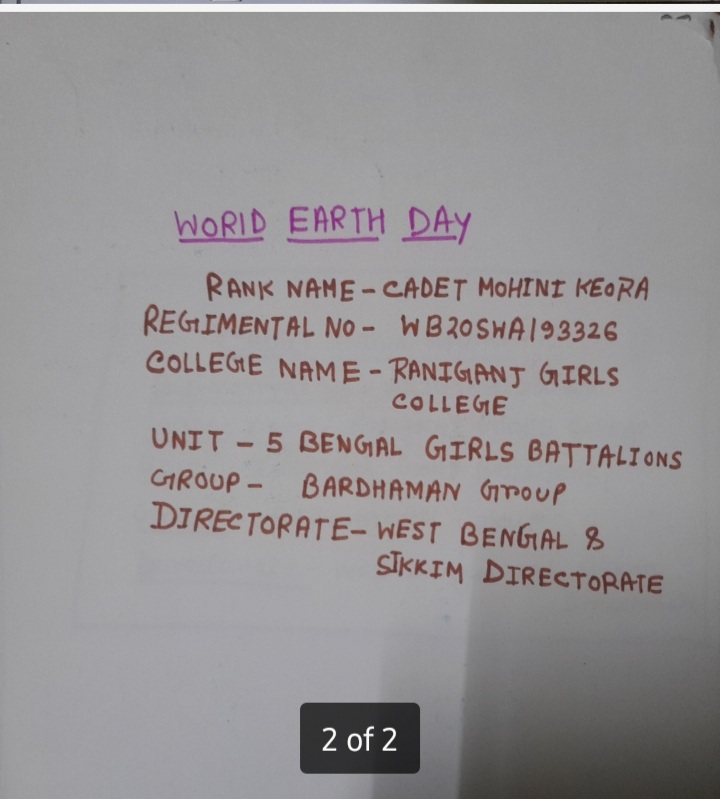 WORlD EARTH DAY
RANK NAME - CADET MOHINI KEORA
REGIMENTAL NO - WB20SWA193326
COLLEGE NAME - RANIGANJ GIRLS
COLLEGE
UNIT - 5 BENGAL GIRLS BATTALIONS
GROUP - BARDHAMAN GrouP
DIRECTORATE - WEST BENGAL &
SIKKIM DIRECTORATE
2 of 2